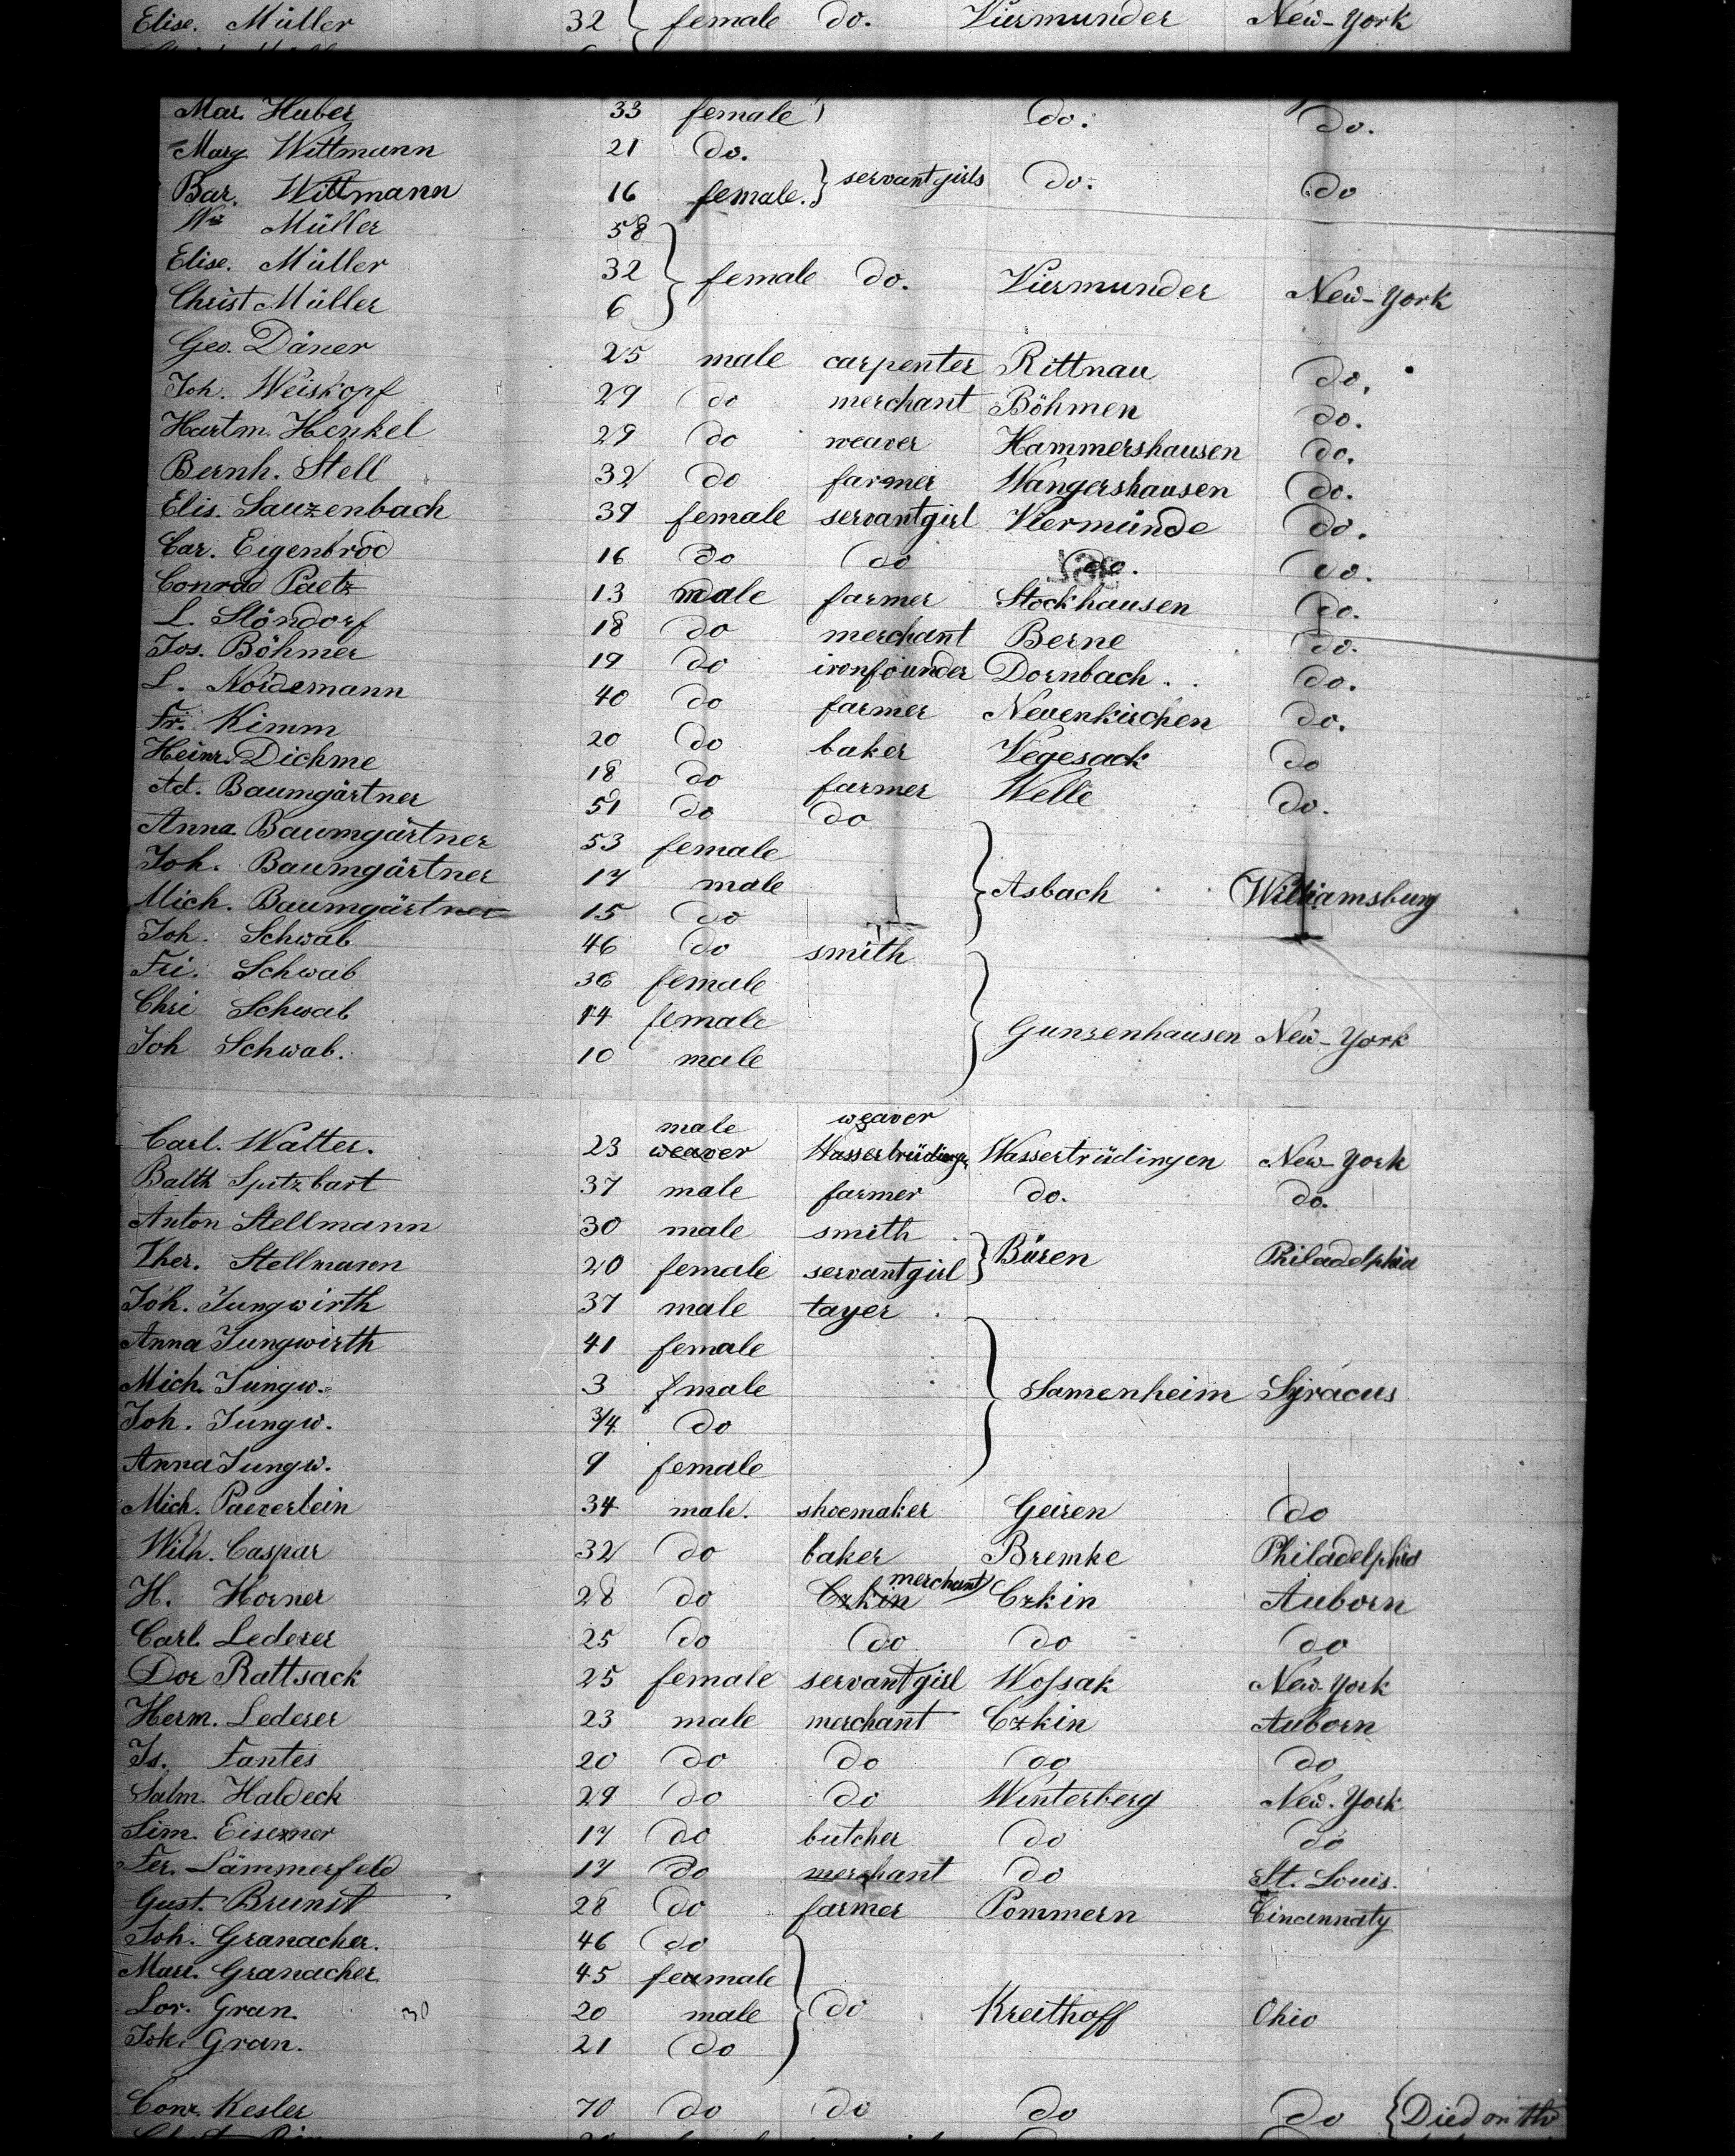 Elise. Müller 32 female do. Viermunder New-York
Mar. Huber 33 female do. do.
Marg Wittmann 21 do.
Bar. Wittmann 16 female. } servantgirls do. do
Müller 58
Elise. Müller 32 female do. Viermunder New-York
Christ Müller 6
Geo. Däner 25 male carpenter Rittnau do.
Joh. Weiskopf 29 do merchant Böhmen do.
Hartm. Henkel 29 do weaver Hammershausen do.
Bernh. Stell 32 do farmer Wangershausen do.
Elis. Sauzenbach 39 female servantgirl Viermünde do.
Car. Eigenbrod 16 do do do. do.
Conrad Paetz 13 male farmer Stockhausen do.
L. Stöndorf 18 do merchant Berne do.
Jos. Böhmer 19 do ironfounder Dornbach do.
L. Nordemann 40 do farmer Neuenkirchen do.
Fr. Kimm 20 do baker Vegesack do
Heinr. Dichme 18 do farmer Welle do.
Ad. Baumgärtner 51 do do
Anna Baumgärtner 53 female
Joh. Baumgärtner 17 male } Asbach Williamsburg
Mich. Baumgärtner 15 do
Joh. Schwab 46 do smith
Fri. Schwab 36 female
Chri Schwab 14 female } Gunzenhausen New-York
Joh Schwab. 10 male
male weaver
Carl. Walter. 23 weaver Wassertrüdingen Wassertrüdingen New-York
Balth Spitzbart 37 male farmer do. do.
Anton Stellmann 30 male smith
Ther. Stellmann 20 female servantgirl } Büren Philadelphia
Joh. Jungwirth 37 male tayer
Anna Jungwirth 41 female
Mich. Jungw. 3 fmale } Samenheim Syracus
Joh. Jungw. 3/4 do
Anna Jungw. 9 female
Mich. Paeverlein 34 male. shoemaker Geiren do
Wilh. Caspar 32 do baker Bremke Philadelphia
H. Horner 28 do Czkin merchant Czkin Auborn
Carl Lederer 25 do do do do
Dor Rattsack 25 female servantgirl Wossak New-York
Herm. Lederer 23 male merchant Czkin Auborn
Is. Fantes 20 do do do do
Salm. Haldeck 29 do do Winterberg New-York
Sim. Eisexner 17 do butcher do do
Fer. Lämmerfeld 17 do merchant do St. Louis.
Gust. Brunst 28 do farmer Pommern Cincinnaty
Joh. Granacher. 46 do
Marr. Granacher. 45 feamale
Lor. Gran. 30 20 male } do Kreithoff Ohio
Joh. Gran. 21 do
Conr. Kesler 70 do do do do { Died on the